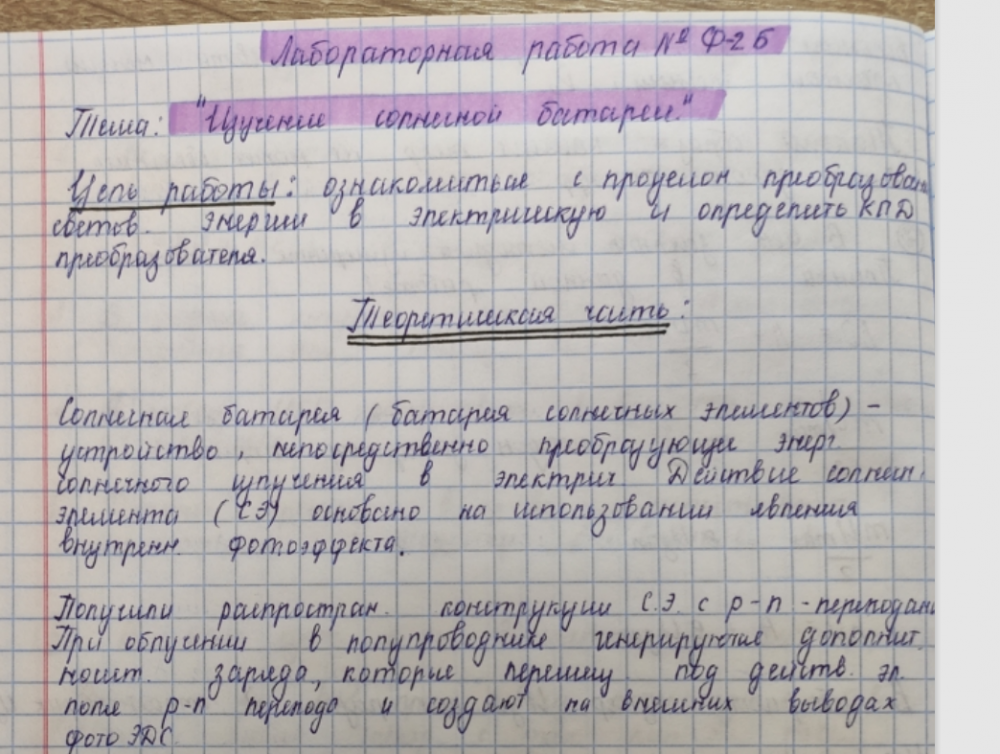 Лабораторная работа № Ф-2 б
Тема: "Изучение солнечной батареи."
Цель работы: ознакомиться с процессом преобразован
светов. энергии в электрическую и определить КПД
преобразователя.
Теоретическая часть:
Солнечная батарея (батарея солнечных элементов) -
устройство, непосредственно преобразующее энерг.
солнечного излучения в электрич Действие солнечн.
элемента (СЭ) основано на использовании явления
внутренн. фотоэффекта.
Получили распростран. конструкции С.Э. с p-n - переходам
При облучении в полупроводнике генерируются дополнит.
носит. заряда, которые перемещ под действ. эл.
поля p-n перехода и создают на внешних выводах
фото ЭДС.